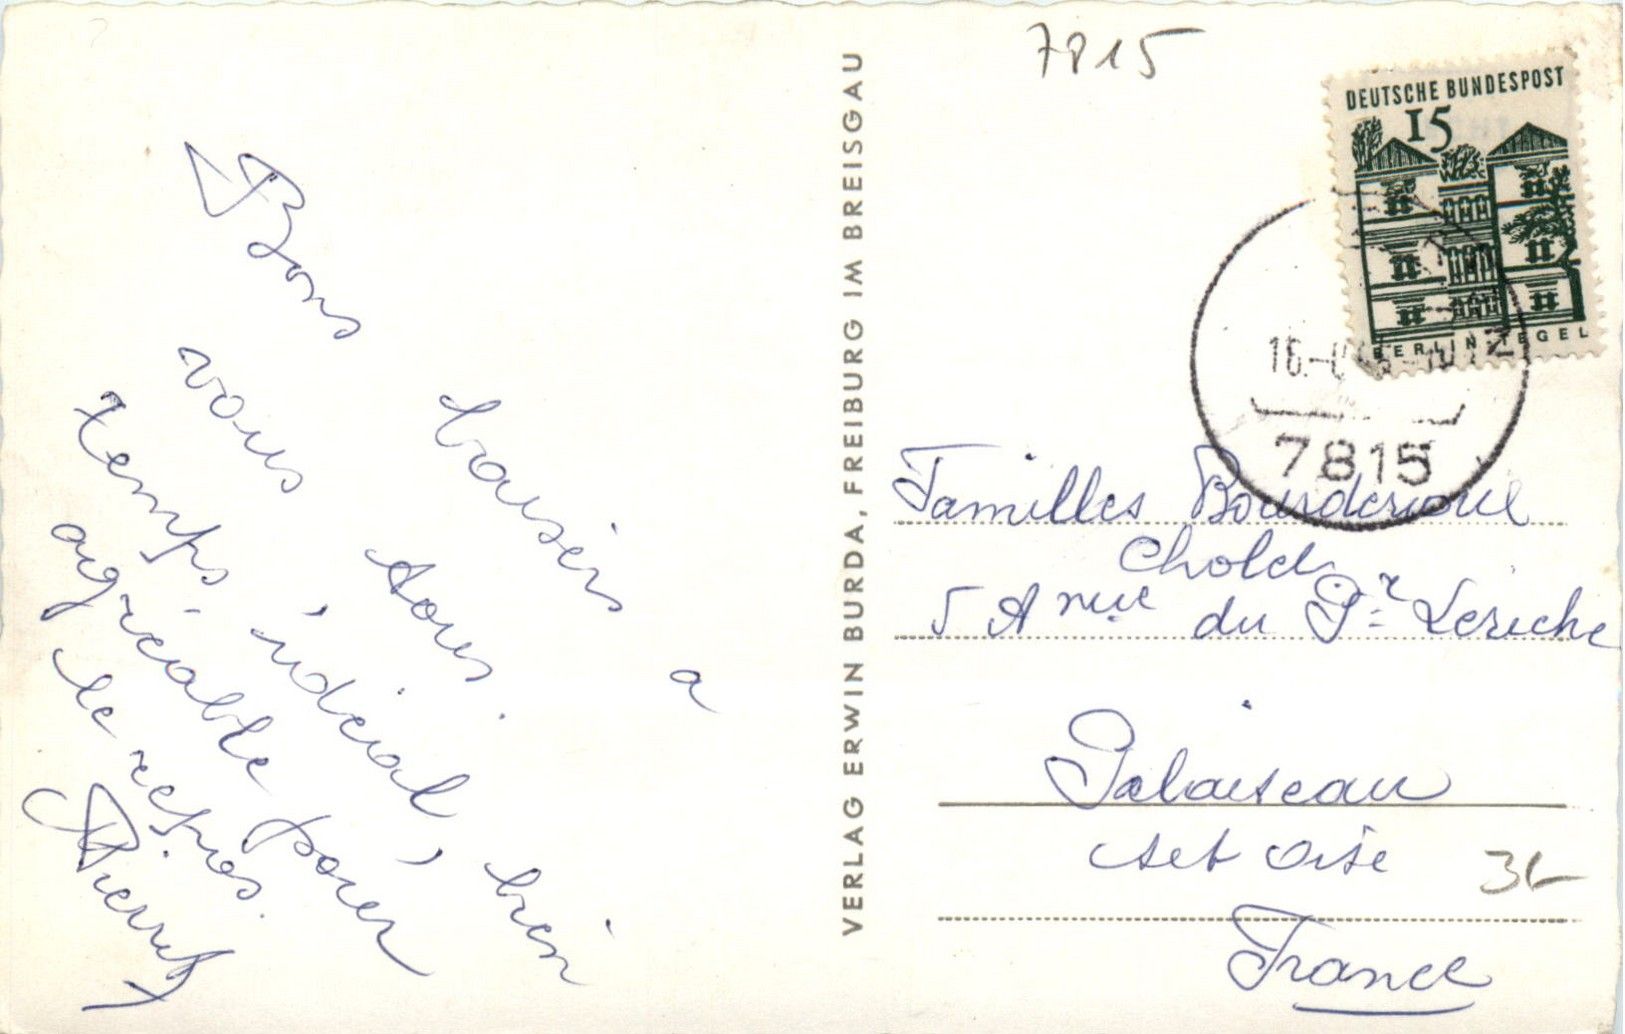 Bons baisers a
vous tous.
temps idéial, bien
agréable pour
le repos.
VERLAG ERWIN BURDA, FREIBURG IM BREISGAU
7815
DEUTSCHE BUNDESPOST
15
BERLIN-TEGEL
7815
Familles
5 A nue du Pr Leriche
Palaiseau
set oise
France